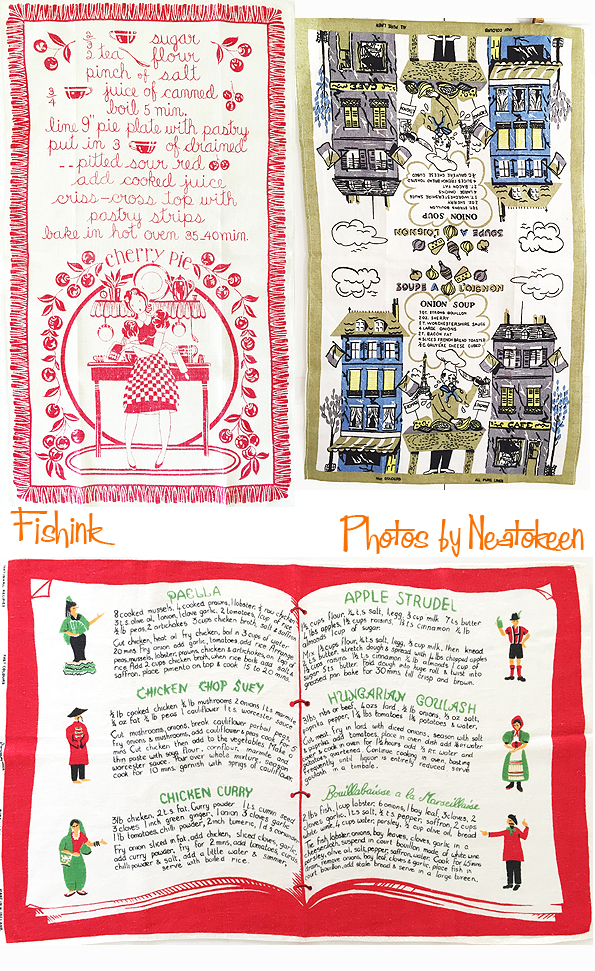 sugar
2 tea flour
pinch of salt
3/4 juice of canned
boil 5 min.
line 9" pie plate with pastry
put in 3 of drained
pitted sour red
add cooked juice
criss-cross top with
pastry strips
bake in hot oven 35-40 min.
cherry pie
ALL PURE LINEN
FAST COLOURS
CAFE
ONION SOUP
SOUPE A L'OIGNON
SOUPE A L'OIGNON
ONION SOUP
1 QT. STRONG BOUILLON
2 OZ. SHERRY
1 T. WORCHESTERSHIRE SAUCE
4 LARGE ONIONS
2 T. BACON FAT
4 SLICES FRENCH BREAD TOASTED
GRUYERE CHEESE CUBED
CAFE
FAST COLOURS
ALL PURE LINEN
Fishink
Photos by Neatokeen
PAELLA
8 cooked mussels, 4 cooked prawns, 1 lobster, raw chicken
3 t.s olive oil, 1 onion, 1 clove garlic, 2 tomatoes, 1 cup of rice
1/2 lb peas, 2 artichokes, 3 cups chicken broth, salt & saffron
Cut chicken, heat oil, fry chicken, boil in 3 cups of water
20 mins. Fry onion add garlic, tomatoes, add rice. Arrange
peas, mussels, lobster, prawns, chicken & artichokes, on top of
rice. Add 2 cups chicken broth, when rice boils add salt &
saffron, place pimento on top & cook 15 to 20 mins.
CHICKEN CHOP SUEY
1/2 lb cooked chicken 1/4 lb mushrooms 2 onions 1 t.s marmite
1/2 oz fat 1/2 lb peas 1 cauliflower 1 t.s worcester sauce
Cut mushrooms, onions, break cauliflower, parboil peas,
fry onions & mushrooms, add cauliflower & peas, cook for 5
mins. Cut chicken then add to the vegetables. Make a
thin paste with soya flour, cornflour, marmite and
worcester sauce. Pour over whole mixture, season
cook for 10 mins. garnish with sprigs of cauliflower.
CHICKEN CURRY
3lb chicken, 2 t.s fat, Curry powder 1 t.s cumin seed
3 cloves 1 inch green ginger, 1 onion 3 cloves garlic
1 lb tomatoes, chilli powder, 2 inch tumeric,
Fry onion sliced in fat, add chicken, sliced cloves, garlic,
add curry powder, fry for 2 mins, add tomatoes, cumin,
chilli powder & salt, add a little water & simmer,
serve with boiled rice.
APPLE STRUDEL
cups flour, 1/4 t.s salt, 1 egg, 2/3 cup milk 7 t.s butter
lbs apples, cups raisins, 1/2 t.s cinnamon lb
almonds 1 cup of sugar.
Mix cups flour, 1/4 t.s salt, 1 egg, cup milk, then knead
t.s butter, stretch dough & spread with lbs chopped apples
cups raisins t.s cinnamon lb almonds 1 cup of
sugar 5 t.s butter. Fold dough into huge roll & twist into
greased pan bake for 30 mins. till crisp and brown.
HUNGARIAN GOULASH
3 lbs ribs of beef, 4 ozs lard, lb onions, oz salt,
paprika pepper, lbs tomatoes potatoes & water.
Cut meat. Fry in lard with diced onions, season with salt
& paprika, add tomatoes, place in oven dish add water
cover & cook in oven for hours add water and
potatoes quartered. Continue cooking in oven, basting
frequently until liquor is entirely reduced serve
goulash in a timbale.
Bouillabaisse a la Marseillaise
2 lbs fish, 1 cup lobster, 6 onions, 1 bay leaf, 3 cloves, 2
cloves garlic, 1 t.s salt, t.s pepper, saffron, 2 cups
white wine, 4 cups water, parsley, cup olive oil, bread
Tie fish, lobster, onions, bay leaves, cloves, garlic in a
cheesecloth, suspend in court bouillon made of white wine
parsley, olive oil, salt, pepper, saffron, water. Cook for 45 mins
drain, remove onions, bay leaf, cloves & garlic, place fish in
court bouillon, add stale bread & serve in a large tureen.